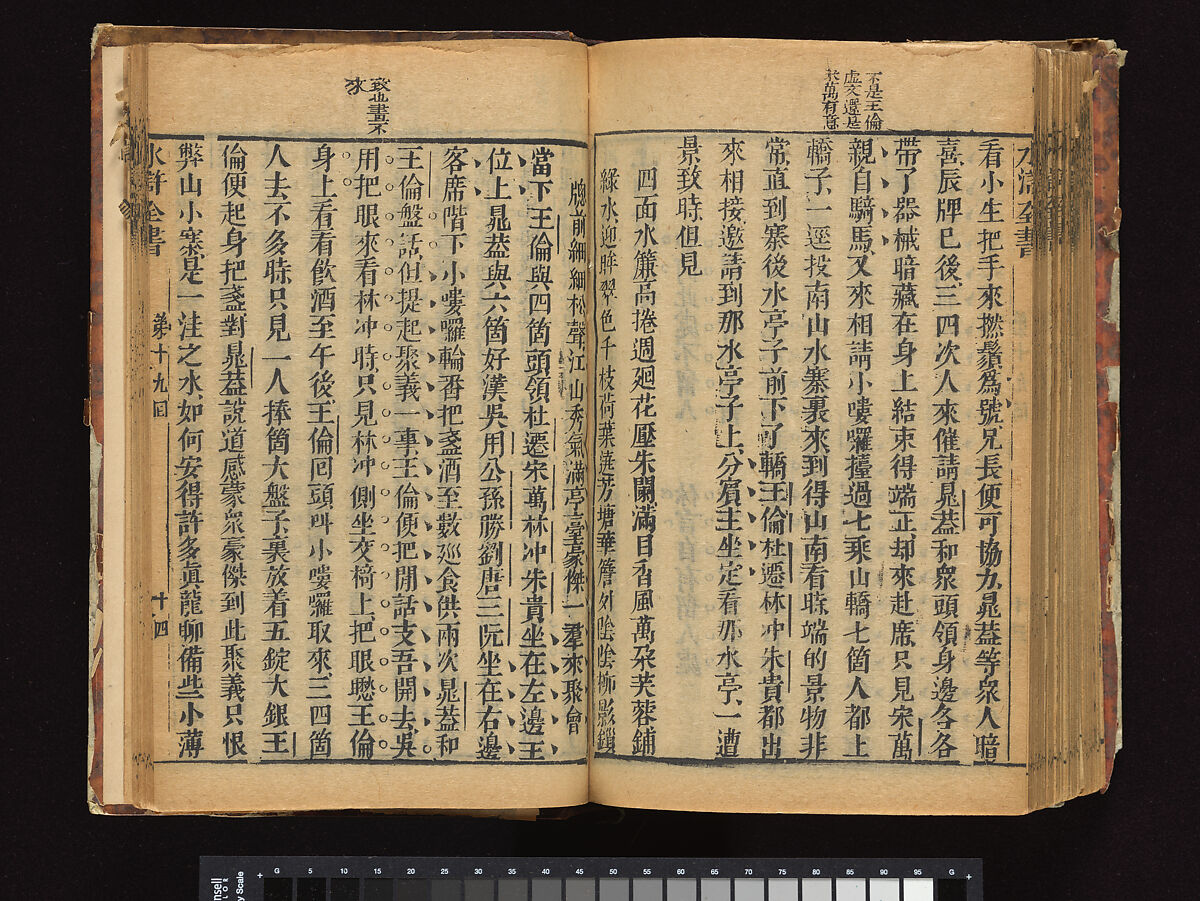 不是王倫
虛文還是
宋萬有意
看小生把手來撚鬚為號兄長便可協力晁蓋等眾人暗
喜辰牌巳後三四次人來催請晁蓋和眾頭領身邊各各
帶了器械暗藏在身上結束得端正却來赴席只見宋萬
親自騎馬又來相請小嘍囉擡過七乘山轎七箇人都上
轎子一逕投南山水寨裏來到得山南看時端的景物非
常直到寨後水亭子前下了轎王倫杜遷林冲朱貴都出
來相接邀請到那水亭子上分賓主坐定看那水亭一遭
景致時但見
四面水簾高捲週迴花壓朱闌滿目香風萬朶芙蓉鋪
綠水迎眸翠色千枝荷葉遶芳塘華簷外陰陰柳影鎖
牕前細細松聲江山秀氣滿亭臺豪傑一羣來聚會
當下王倫與四箇頭領杜遷宋萬林冲朱貴坐在左邊主
位上晁葢與六箇好漢吳用公孫勝劉唐三阮坐在右邊
客席階下小嘍囉輪番把盞酒至數廵食供兩次晁葢和
王倫盤話但提起聚義一事王倫便把閒話支吾開去吳
用把眼來看林冲時只見林冲側坐交椅上把眼瞅王倫
身上看看飲酒至午後王倫回頭叫小嘍囉取來三四箇
人去不多時只見一人捧箇大盤子裏放着五錠大銀王
倫便起身把盞對晁葢說道感蒙眾豪傑到此聚義只恨
弊山小寨是一洼之水如何安得許多眞龍聊備些小薄
致也畫不
來
水滸全書
第十九回
十四
水滸全書